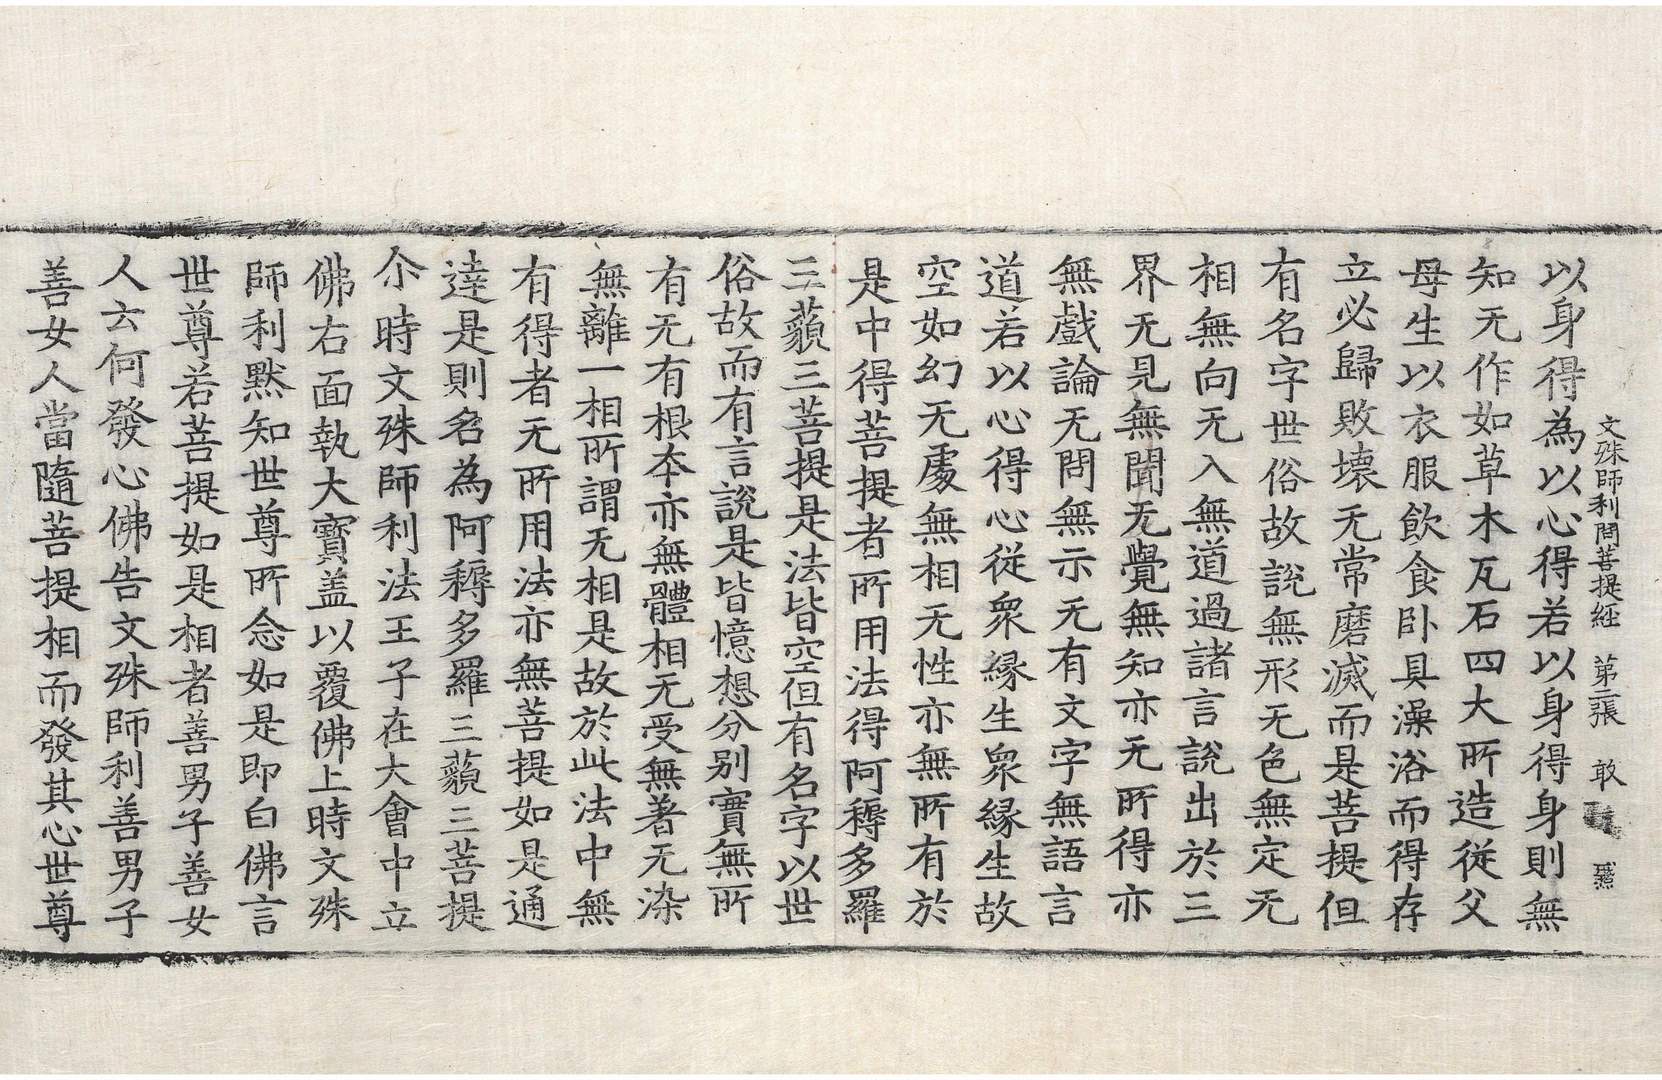 文殊師利問菩提經 第二張 敢
以身得為以心得若以身得身則無
知无作如草木瓦石四大所造從父
母生以衣服飲食卧具澡浴而得存
立必歸敗壊无常磨滅而是菩提但
有名字世俗故說無形无色無定无
相無向无入無道過諸言說出於三
界无見無聞无覺無知亦无所得亦
無戲論无問無示无有文字無語言
道若以心得心從衆縁生衆縁生故
空如幻无處無相无性亦無所有於
是中得菩提者所用法得阿耨多羅
三藐三菩提是法皆空但有名字以世
俗故而有言說是皆憶想分別實無所
有无有根夲亦無體相无受無著无染
無離一相所謂无相是故於此法中無
有得者无所用法亦無菩提如是通
達是則名為阿耨多羅三藐三菩提
尒時文殊師利法王子在大會中立
佛右面執大寳盖以覆佛上時文殊
師利黙知世尊所念如是即白佛言
世尊若菩提如是相者善男子善女
人云何發心佛告文殊師利善男子
善女人當隨菩提相而發其心世尊